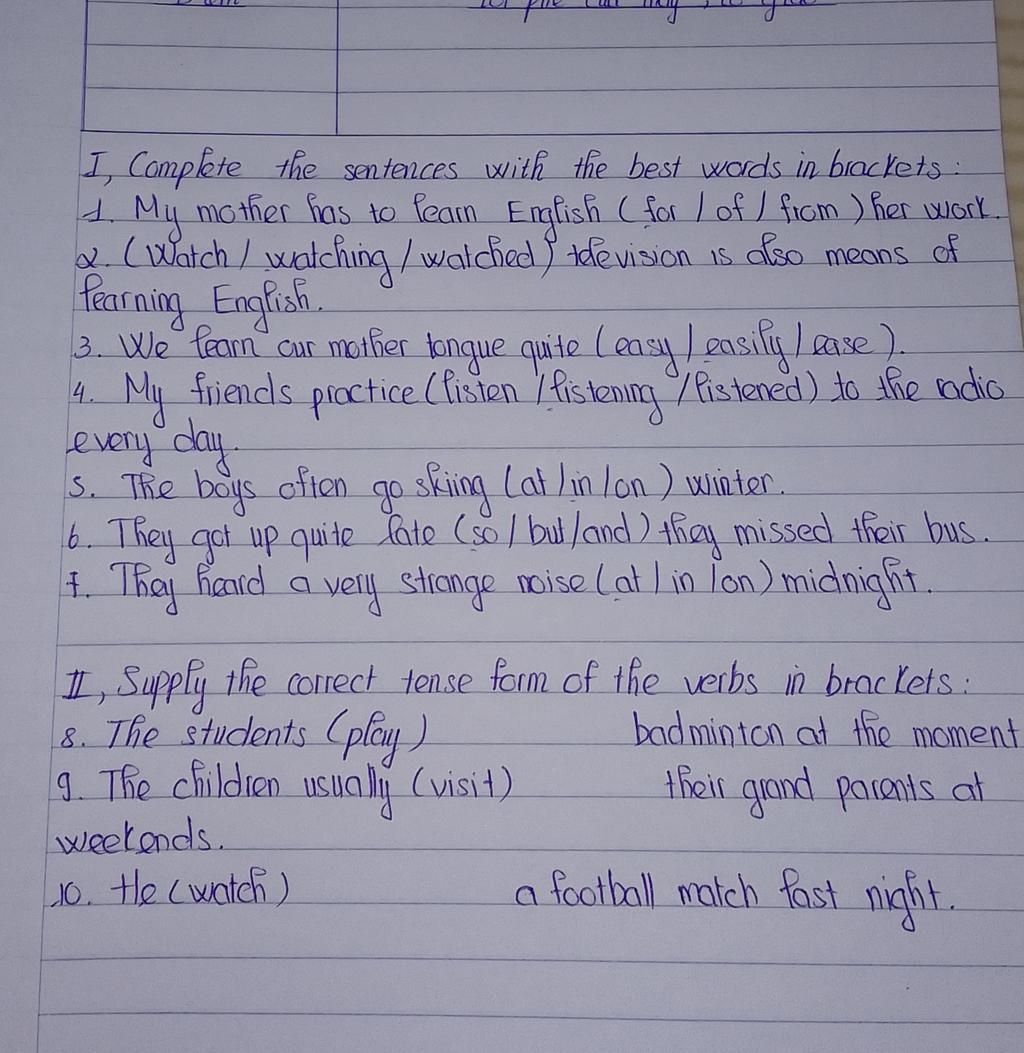 I, Complete the sentences with the best words in brackets:
1. My mother has to learn English (for / of / from) her work.
2. (Watch / watching / watched) television is also means of
learning English.
3. We learn our mother tongue quite (easy / easily / ease).
4. My friends practice (listen / listening / listened) to the radio
every day.
5. The boys often go skiing (at / in / on) winter.
6. They got up quite late (so / but / and) they missed their bus.
7. They heard a very strange noise (at / in / on) midnight.
II, Supply the correct tense form of the verbs in brackets:
8. The students (play) badminton at the moment
9. The children usually (visit) their grand parents at
weekends.
10. He (watch) a football match last night.